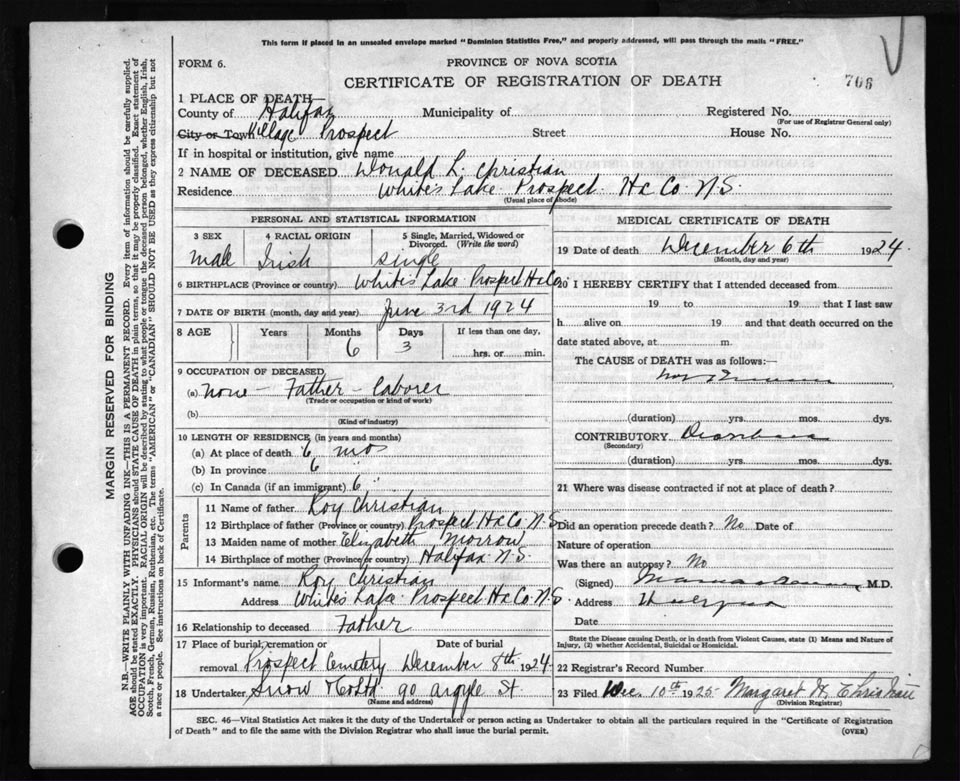 This form if placed in an unsealed envelope marked "Dominion Statistics Free," and properly addressed, will pass through the mails "FREE."
FORM 6.
PROVINCE OF NOVA SCOTIA
CERTIFICATE OF REGISTRATION OF DEATH
706
1 PLACE OF DEATH—
County of Halifax Municipality of Registered No.
(For use of Registrar General only)
City or Town Village Prospect Street House No.
If in hospital or institution, give name
2 NAME OF DECEASED Donald L. Christian
Residence White's Lake Prospect Hx Co N.S.
(Usual place of abode)
PERSONAL AND STATISTICAL INFORMATION
3 SEX 4 RACIAL ORIGIN 5 Single, Married, Widowed or Divorced. (Write the word)
male Irish single
6 BIRTHPLACE (Province or country) White's Lake Prospect Hx Co
7 DATE OF BIRTH (month, day and year) June 3rd 1924
8 AGE Years Months Days If less than one day,
6 3 hrs. or min.
9 OCCUPATION OF DECEASED
(a) none — Father — laborer
(Trade or occupation or kind of work)
(b)
(Kind of industry)
10 LENGTH OF RESIDENCE (in years and months)
(a) At place of death 6 mos
(b) In province 6 "
(c) In Canada (if an immigrant) 6 "
Parents
11 Name of father Roy Christian
12 Birthplace of father (Province or country) Prospect Hx Co N.S.
13 Maiden name of mother Elizabeth Morrow
14 Birthplace of mother (Province or country) Halifax N.S.
15 Informant's name Roy Christian
Address White's Lake Prospect Hx Co. N.S.
16 Relationship to deceased Father
17 Place of burial, cremation or removal Date of burial
Prospect Cemetery December 8th 1924
18 Undertaker Snow & Co Ltd. 90 Argyle St.
(Name and address)
MEDICAL CERTIFICATE OF DEATH
19 Date of death December 6th 1924.
(Month, day and year)
20 I HEREBY CERTIFY that I attended deceased from
19 to 19 that I last saw
h alive on 19 and that death occurred on
date stated above, at m.
The CAUSE of DEATH was as follows:—
(duration) yrs. mos. dys.
CONTRIBUTORY Diarrhoea
(Secondary)
(duration) yrs. mos. dys.
21 Where was disease contracted if not at place of death?
Did an operation precede death? No Date of
Nature of operation
Was there an autopsy? No
(Signed) M.D.
Address
Date
State the Disease causing Death, or in death from Violent Causes, state (1) Means and Nature of Injury, (2) whether Accidental, Suicidal or Homicidal.
22 Registrar's Record Number
23 Filed Dec. 10th 1925 Margaret H. Christian
(Division Registrar)
SEC. 46—Vital Statistics Act makes it the duty of the Undertaker or person acting as Undertaker to obtain all the particulars required in the "Certificate of Registration
of Death" and to file the same with the Division Registrar who shall issue the burial permit. (OVER)
MARGIN RESERVED FOR BINDING
N.B.—WRITE PLAINLY WITH UNFADING INK—THIS IS A PERMANENT RECORD. Every item of information should be carefully supplied.
AGE should be stated EXACTLY. PHYSICIANS should STATE CAUSE OF DEATH in plain terms, so that it may be properly classified. Exact statement of
OCCUPATION is very important. RACIAL ORIGIN will be described by stating to what people or tongue the deceased person belonged, whether English, Irish,
Scotch, French, German, Russian, Ruthenian, etc. The terms "AMERICAN" or "CANADIAN" SHOULD NOT BE USED as they express citizenship but not
a race or people. See instructions on back of Certificate.